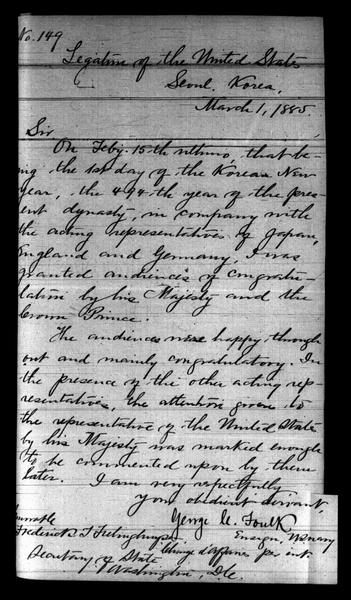 No. 149
Legation of the United States
Seoul, Korea,
March 1, 1885.
Sir
On Feby. 15th ultimo, that be-
ing the 1st day of the Korean New
Year, the 494th year of the pres-
ent dynasty, in company with
the acting representatives of Japan,
England and Germany, I was
granted audiences of congratu-
lation by his Majesty and the
Crown Prince.
The audiences were happy through
out and mainly congratulatory. In
the presence of the other acting rep-
resentatives, the attention given to
the representative of the United States
by his Majesty was marked enough
to be commented upon by them
later. I am very respectfully
your obedient servant
George C. Foulk
Ensign, U.S. Navy
Chargé d'Affaires
Honorable
Frederick T. Frelinghuysen
Secretary of State
Washington, D.C.